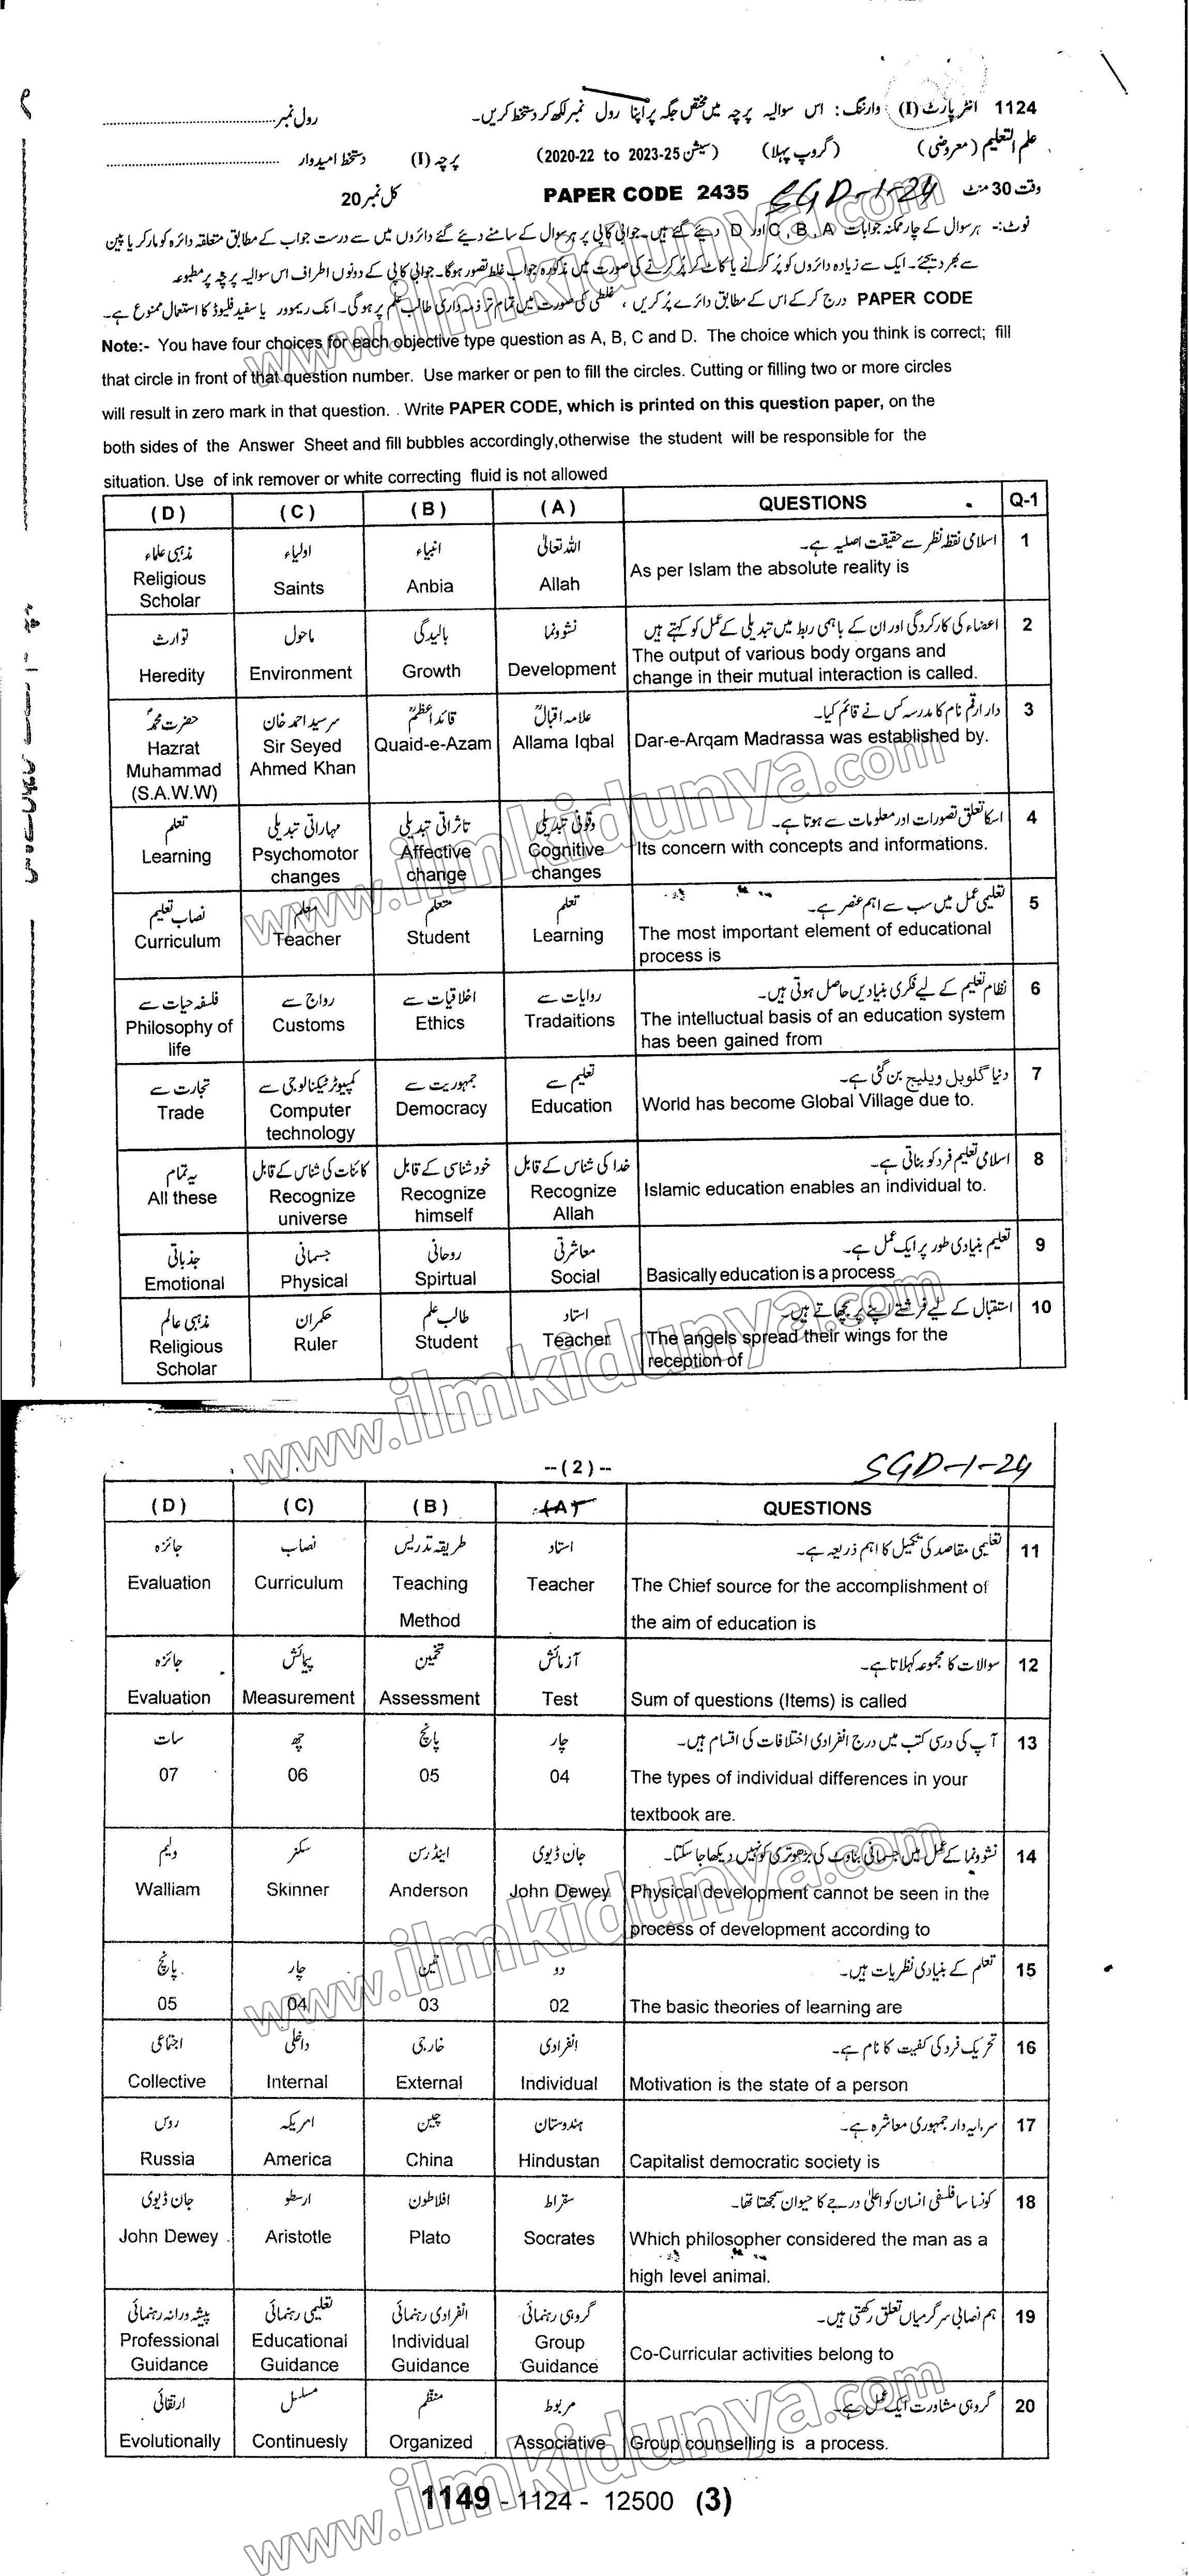 1124 انٹر پارٹ (I) وارننگ: اس سوالیہ پرچہ میں مختص جگہ پر اپنا رول نمبر لکھ کر دستخط کریں۔ رول نمبر
علم التعلیم (معروضی) (گروپ پہلا) (سیشن 2020-22 to 2023-25) پرچہ (I) دستخط امیدوار
وقت 30 منٹ SGD-1-24 PAPER CODE 2435 کل نمبر 20
نوٹ:- ہر سوال کے چار ممکنہ جوابات A ، B ، C اور D دیئے گئے ہیں۔ جوابی کاپی پر ہر سوال کے سامنے دیئے گئے دائروں میں سے درست جواب کے مطابق متعلقہ دائرہ کو مارکر یا پین
سے بھر دیجئے۔ ایک سے زیادہ دائروں کو پُر کرنے یا کاٹ کر پُر کرنے کی صورت میں مذکورہ جواب غلط تصور ہوگا۔ جوابی کاپی کے دونوں اطراف اس سوالیہ پرچہ پر مطبوعہ
PAPER CODE درج کر کے اس کے مطابق دائرے پُر کریں ، غلطی کی صورت میں تمام تر ذمہ داری طالب علم پر ہوگی۔ انک ریموور یا سفید فلیوڈ کا استعمال ممنوع ہے۔
Note:- You have four choices for each objective type question as A, B, C and D. The choice which you think is correct; fill
that circle in front of that question number. Use marker or pen to fill the circles. Cutting or filling two or more circles
will result in zero mark in that question. . Write PAPER CODE, which is printed on this question paper, on the
both sides of the Answer Sheet and fill bubbles accordingly,otherwise the student will be responsible for the
situation. Use of ink remover or white correcting fluid is not allowed
( D ) ( C ) ( B ) ( A ) QUESTIONS Q-1
مذہبی علماء اولیاء انبیاء اللہ تعالیٰ اسلامی نقطہ نظر سے حقیقت اصلیہ ہے۔ 1
Religious Scholar Saints Anbia Allah As per Islam the absolute reality is
توارث ماحول بالیدگی نشوونما اعضاء کی کارکردگی اور ان کے باہمی ربط میں تبدیلی کے عمل کو کہتے ہیں 2
Heredity Environment Growth Development The output of various body organs and
change in their mutual interaction is called.
حضرت محمدؐ سر سید احمد خان قائد اعظمؒ علامہ اقبالؒ دار ارقم نام کا مدرسہ کس نے قائم کیا۔ 3
Hazrat Muhammad (S.A.W.W) Sir Seyed Ahmed Khan Quaid-e-Azam Allama Iqbal Dar-e-Arqam Madrassa was established by.
تعلم مہاراتی تبدیلی تاثراتی تبدیلی وقوفی تبدیلی اسکا تعلق تصورات اور معلومات سے ہوتا ہے۔ 4
Learning Psychomotor changes Affective change Cognitive changes Its concern with concepts and informations.
نصاب تعلیم معلم متعلم تعلم تعلیمی عمل میں سب سے اہم عنصر ہے۔ 5
Curriculum Teacher Student Learning The most important element of educational
process is
فلسفہ حیات سے رواج سے اخلاقیات سے روایات سے نظام تعلیم کے لیے فکری بنیادیں حاصل ہوتی ہیں۔ 6
Philosophy of life Customs Ethics Tradaitions The intelluctual basis of an education system
has been gained from
تجارت سے کمپیوٹر ٹیکنالوجی سے جمہوریت سے تعلیم سے دنیا گلوبل ویلیج بن گئی ہے۔ 7
Trade Computer technology Democracy Education World has become Global Village due to.
یہ تمام کائنات کی شناس کے قابل خود شناسی کے قابل خدا کی شناس کے قابل اسلامی تعلیم فرد کو بناتی ہے۔ 8
All these Recognize universe Recognize himself Recognize Allah Islamic education enables an individual to.
جذباتی جسمانی روحانی معاشرتی تعلیم بنیادی طور پر ایک عمل ہے۔ 9
Emotional Physical Spirtual Social Basically education is a process
مذہبی عالم حکمران طالب علم استاد استقبال کے لیے فرشتے اپنے پر بچھاتے ہیں۔ 10
Religious Scholar Ruler Student Teacher The angels spread their wings for the
reception of
--(2)-- SGD-1-24
( D ) (C) ( B ) (A) QUESTIONS
جائزہ نصاب طریقہ تدریس استاد تعلیمی مقاصد کی تکمیل کا اہم ذریعہ ہے۔ 11
Evaluation Curriculum Teaching Method Teacher The Chief source for the accomplishment of
the aim of education is
جائزہ پیمائش تخمین آزمائش سوالات کا مجموعہ کہلاتا ہے۔ 12
Evaluation Measurement Assessment Test Sum of questions (Items) is called
سات چھ پانچ چار آپ کی درسی کتب میں درج انفرادی اختلافات کی اقسام ہیں۔ 13
07 06 05 04 The types of individual differences in your
textbook are.
ولیم سکنر اینڈرسن جان ڈیوی نشوونما کے عمل میں جسمانی بناوٹ کی بڑھوتری کو نہیں دیکھا جا سکتا۔ 14
Walliam Skinner Anderson John Dewey Physical development cannot be seen in the
process of development according to
پانچ چار تین دو تعلم کے بنیادی نظریات ہیں۔ 15
05 04 03 02 The basic theories of learning are
اجتماعی داخلی خارجی انفرادی تحریک فرد کی کیفیت کا نام ہے۔ 16
Collective Internal External Individual Motivation is the state of a person
روس امریکہ چین ہندوستان سرمایہ دار جمہوری معاشرہ ہے۔ 17
Russia America China Hindustan Capitalist democratic society is
جان ڈیوی ارسطو افلاطون سقراط کونسا فلسفی انسان کو اعلیٰ درجے کا حیوان سمجھتا تھا۔ 18
John Dewey Aristotle Plato Socrates Which philosopher considered the man as a
high level animal.
پیشہ ورانہ رہنمائی تعلیمی رہنمائی انفرادی رہنمائی گروہی رہنمائی ہم نصابی سرگرمیاں تعلق رکھتی ہیں۔ 19
Professional Guidance Educational Guidance Individual Guidance Group Guidance Co-Curricular activities belong to
ارتقائی مسلسل منظم مربوط گروہی مشاورت ایک عمل ہے۔ 20
Evolutionally Continuesly Organized Associative Group counselling is a process.
1149 - 1124 - 12500 (3)
www.ilmkidunya.com
www.ilmkidunya.com
www.ilmkidunya.com
www.ilmkidunya.com
www.ilmkidunya.com